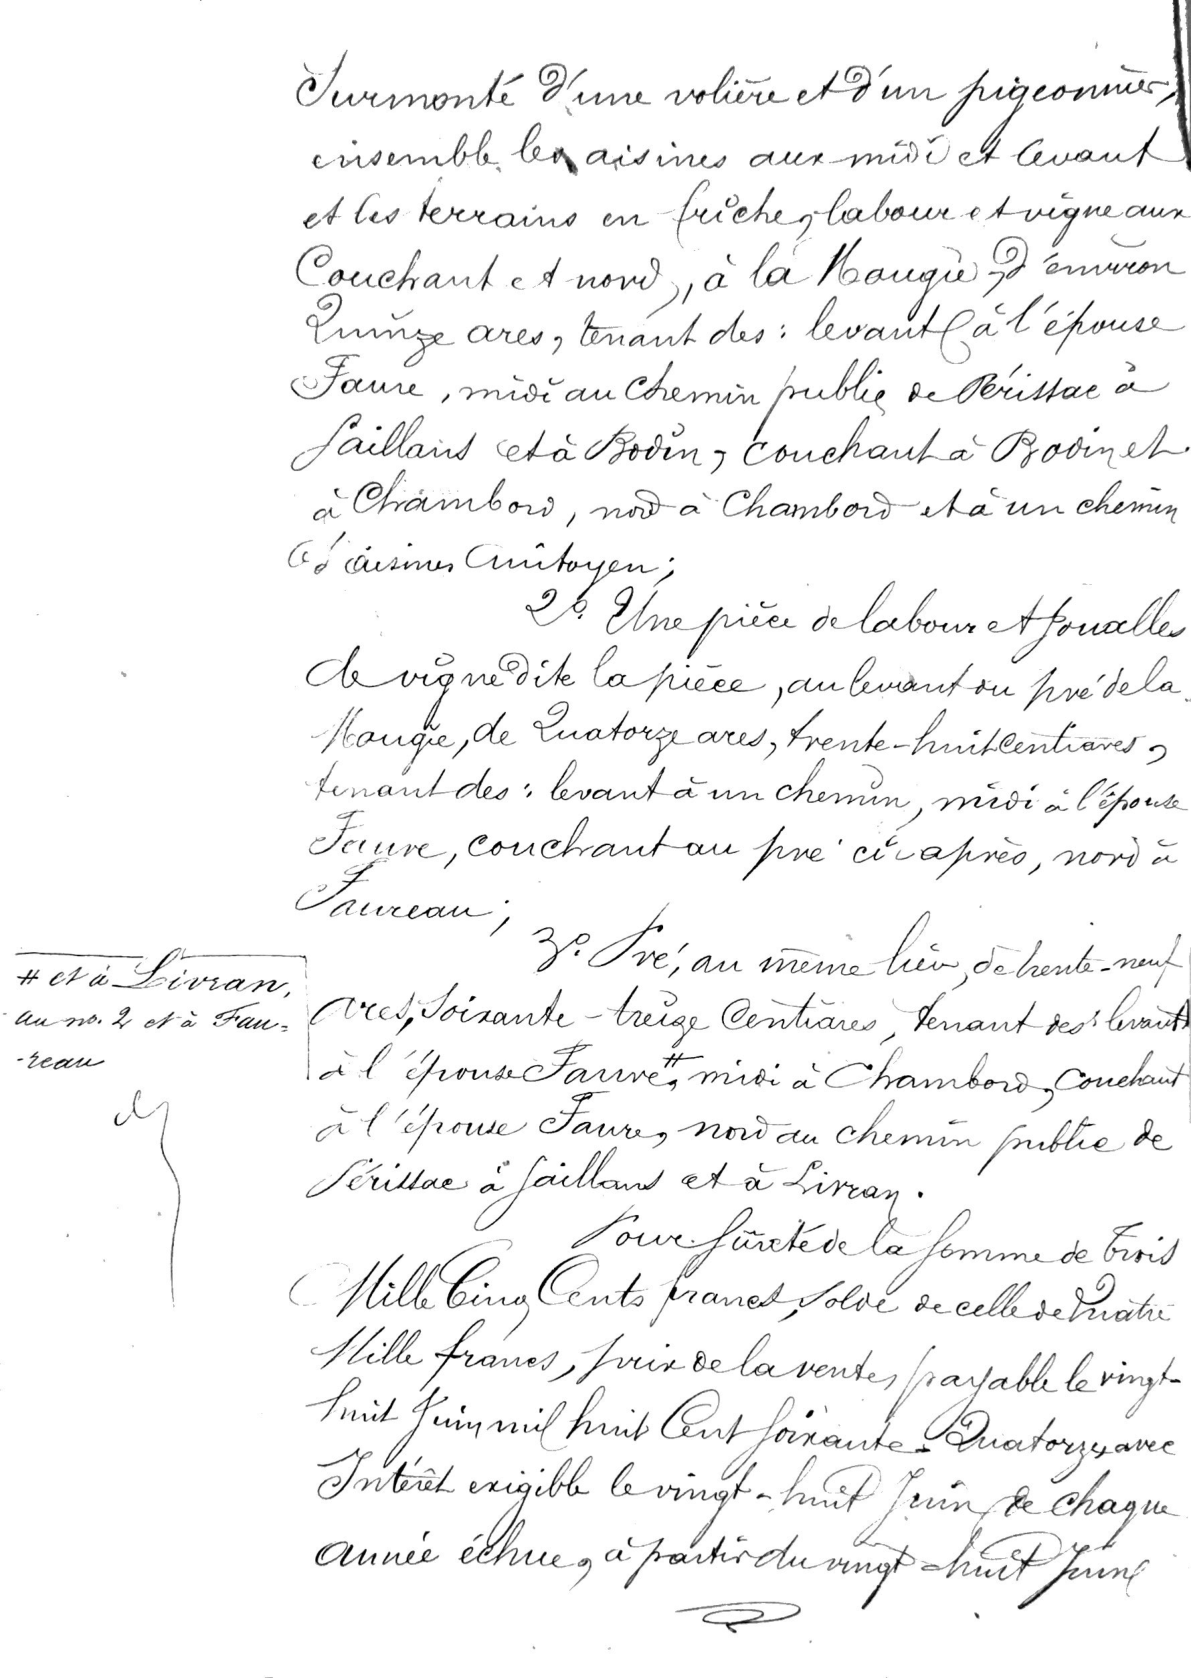 Surmonté d'une volière et d'un pigeonnier,
ensemble les aisines aux midi et levant
et les terrains en friche, labour et vigne aux
Couchant et nord, à la Mougie, d'environ
Quinze ares, tenant des: levant à l'épouse
Faure, midi au Chemin public de Périssac à
Saillans et à Bodin, couchant à Bodin et
à Chambord, nord à Chambord et à un chemin
d'aisines mitoyen;
2º. Une pièce de labour et Joualles
de vigne dite la pièce, au levant ou pré de la
Mougie, de Quatorze ares, trente-huit Centiares,
tenant des: levant à un chemin, midi à l'épouse
Faure, couchant au pré ci-après, nord à
Faureau;
3º. Pré, au même lieu, de trente-neuf
# et à Livran,
au no. 2 et à Fau=
-reau
ares, Soixante-treize Centiares, tenant des: levant
à l'épouse Faure,# midi à Chambord, Couchant
à l'épouse Faure, nord au chemin public de
Périssac à Saillans et à Livran.
Pour Sûreté de la Somme de Trois
Mille Cinq Cents francs, Solde de celle de Quatre
Mille francs, prix de la vente, payable le vingt-
huit Juin mil huit Cent Soixante-Quatorze, avec
Intérêt exigible le vingt-huit Juin de chaque
année échue, à partir du vingt-huit Juin